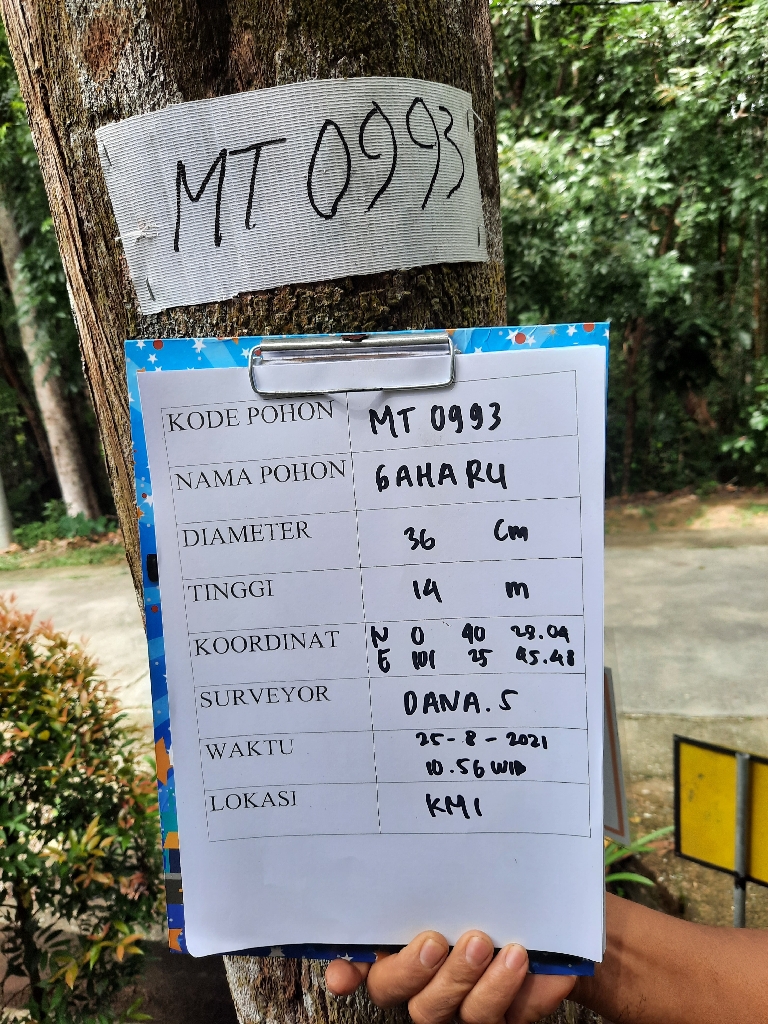 MT 0993
KODE POHON MT 0993
NAMA POHON GAHARU
DIAMETER 36 Cm
TINGGI 14 m
KOORDINAT N 0 40 29.04
E 101 25 45.48
SURVEYOR DANA.S
WAKTU 25-8-2021
10.56 WIB
LOKASI KM1